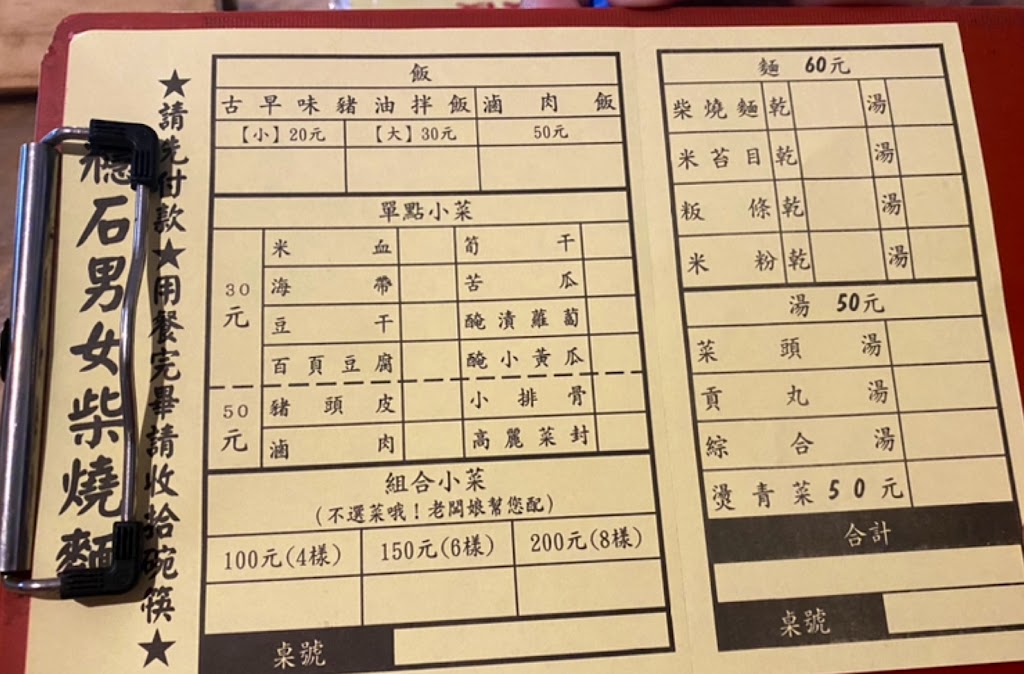 穩石男女柴燒麵
★請先付款★用餐完畢請收拾碗筷★
飯
古早味豬油拌飯 滷肉飯
【小】20元 【大】30元 50元
單點小菜
30元
米血 筍干
海帶 苦瓜
豆干 醃漬蘿蔔
百頁豆腐 醃小黃瓜
50元
豬頭皮 小排骨
滷肉 高麗菜封
組合小菜
(不選菜哦！老闆娘幫您配)
100元(4樣) 150元(6樣) 200元(8樣)
桌號
麵 60元
柴燒麵 乾 湯
米苔目 乾 湯
粄條 乾 湯
米粉 乾 湯
湯 50元
菜頭湯
貢丸湯
綜合湯
燙青菜50元
合計
桌號